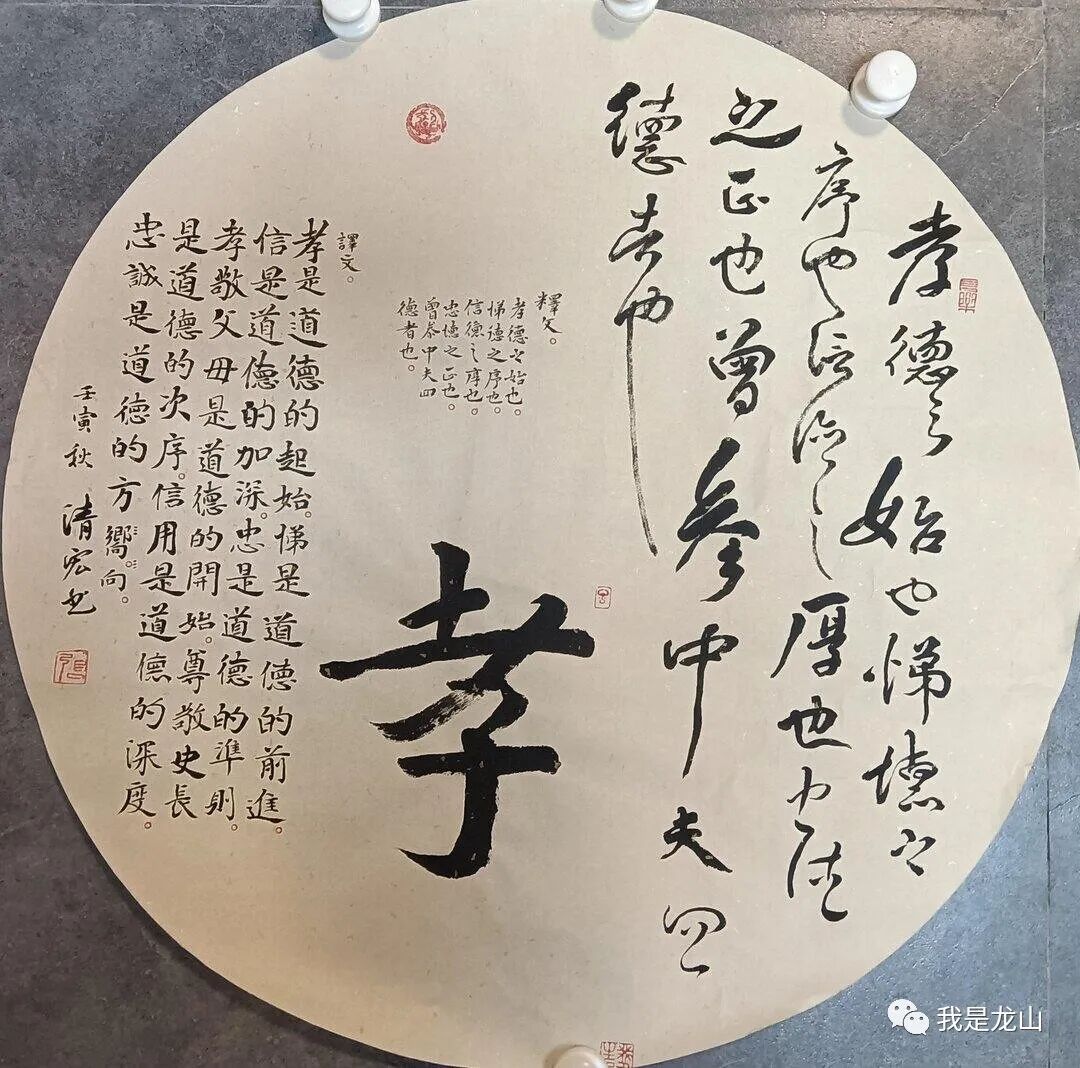 孝德之始也悌德之
序也信德之厚也忠德
之正也曾參中夫四
德者也
孝
釋文。
孝德之始也。
悌德之序也。
信德之厚也。
忠德之正也。
曾參中夫四
德者也。
譯文。
孝是道德的起始。悌是道德的前進。
信是道德的加深。忠是道德的準則。
孝敬父母是道德的開始。尊敬史長
是道德的次序。信用是道德的深度。
忠誠是道德的方嚮向。
壬寅秋 清宏书
我是龙山